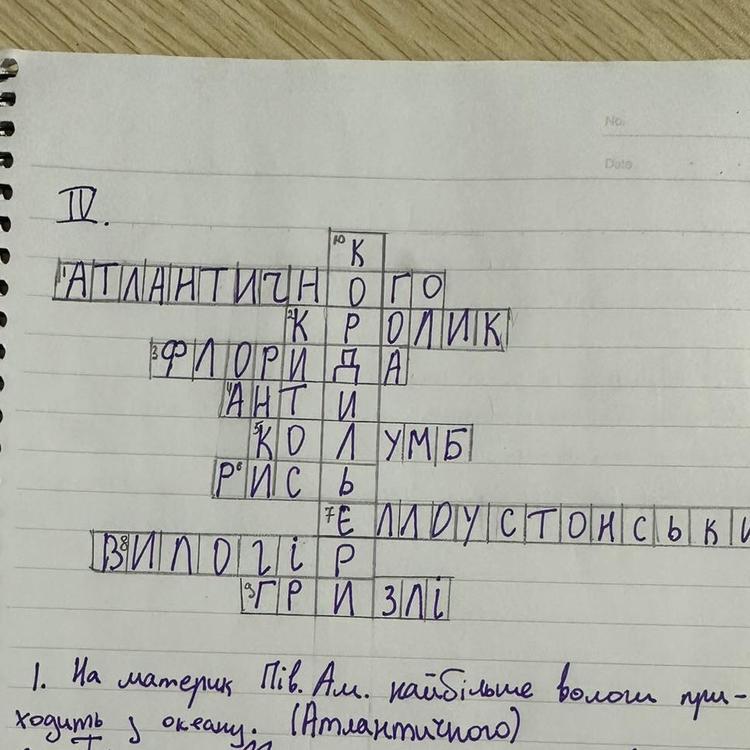 No.
Date
IV.
10 К
1 АТЛАНТИЧНОГО
2 КРОЛИК
3 ФЛОРИДА
4 АНТИ
5 КОЛУМБ
6 РИСЬ
7 ЕЛЛОУСТОНСЬКИ
8 ВИЛОГІР
9 ГРИЗЛІ
1. На материк Пів. Ам. найбільше вологи при-
ходить з океану. (Атлантичного)